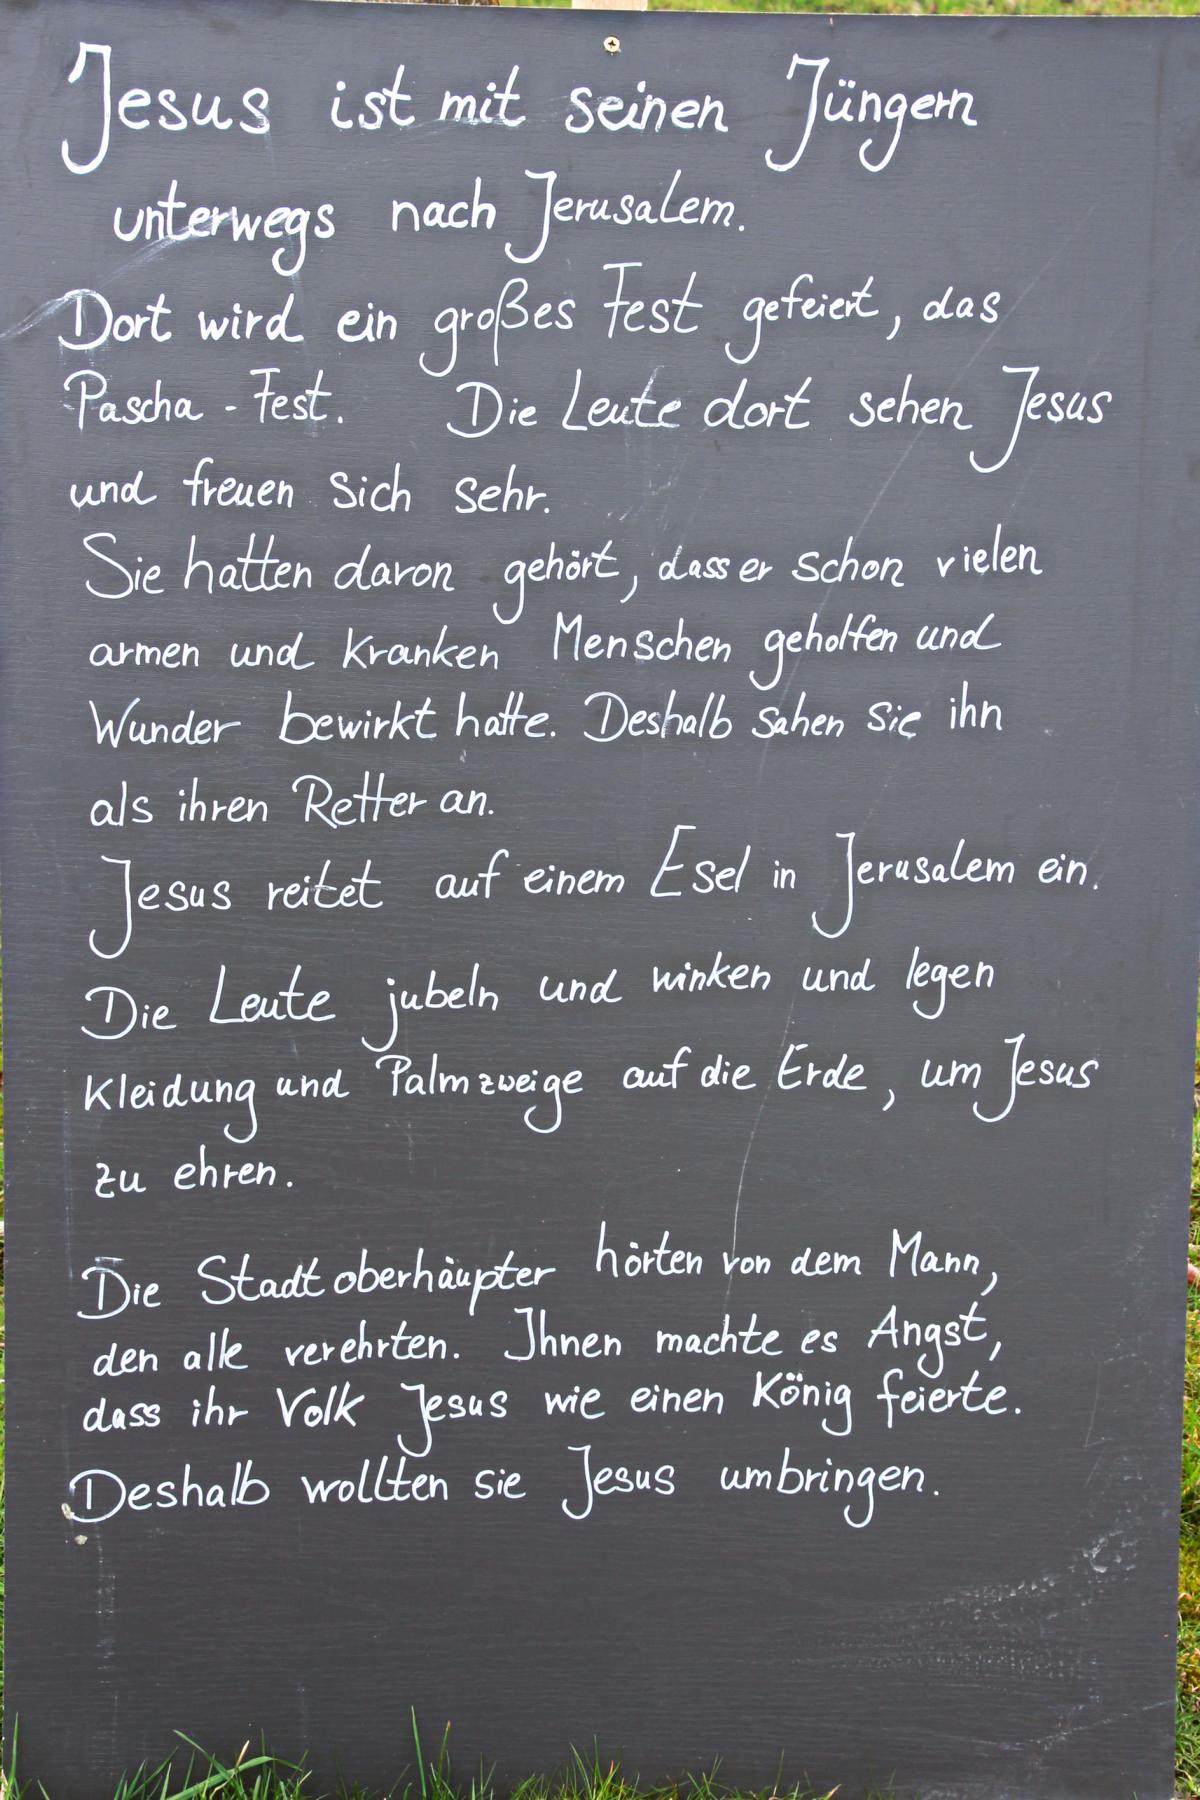 Jesus ist mit seinen Jüngern
unterwegs nach Jerusalem.
Dort wird ein großes Fest gefeiert, das
Pascha - Fest. Die Leute dort sehen Jesus
und freuen sich sehr.
Sie hatten davon gehört, dass er schon vielen
armen und kranken Menschen geholfen und
Wunder bewirkt hatte. Deshalb sahen sie ihn
als ihren Retter an.
Jesus reitet auf einem Esel in Jerusalem ein.
Die Leute jubeln und winken und legen
Kleidung und Palmzweige auf die Erde, um Jesus
zu ehren.
Die Stadtoberhäupter hörten von dem Mann,
den alle verehrten. Ihnen machte es Angst,
dass ihr Volk Jesus wie einen König feierte.
Deshalb wollten sie Jesus umbringen.